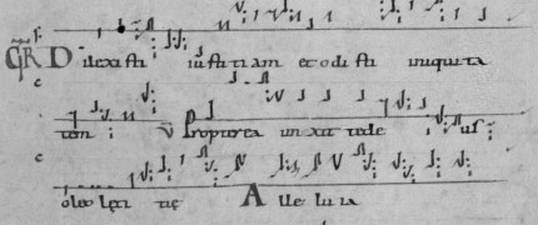 GR Dilexisti iustitiam et odisti iniquita
tem V Propterea unxit te de us
oleo letitię Alleluia